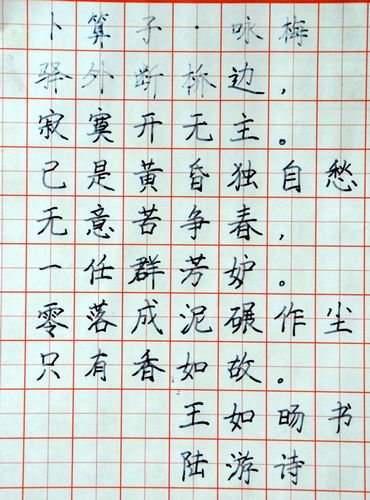 卜算子·咏梅
驿外断桥边,
寂寞开无主。
已是黄昏独自愁
无意苦争春,
一任群芳妒。
零落成泥碾作尘
只有香如故。
王如旸书
陆游诗